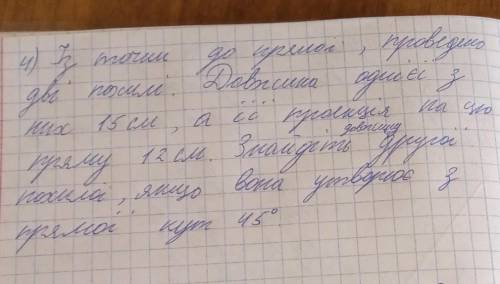 4) Із точки до прямої, проведено
дві похилі. Довжина однієї з
них 15 см, а її проекція на цю
пряму 12 см. Знайдіть довжину другої
похилої, якщо вона утворює з
прямої кут 45°.